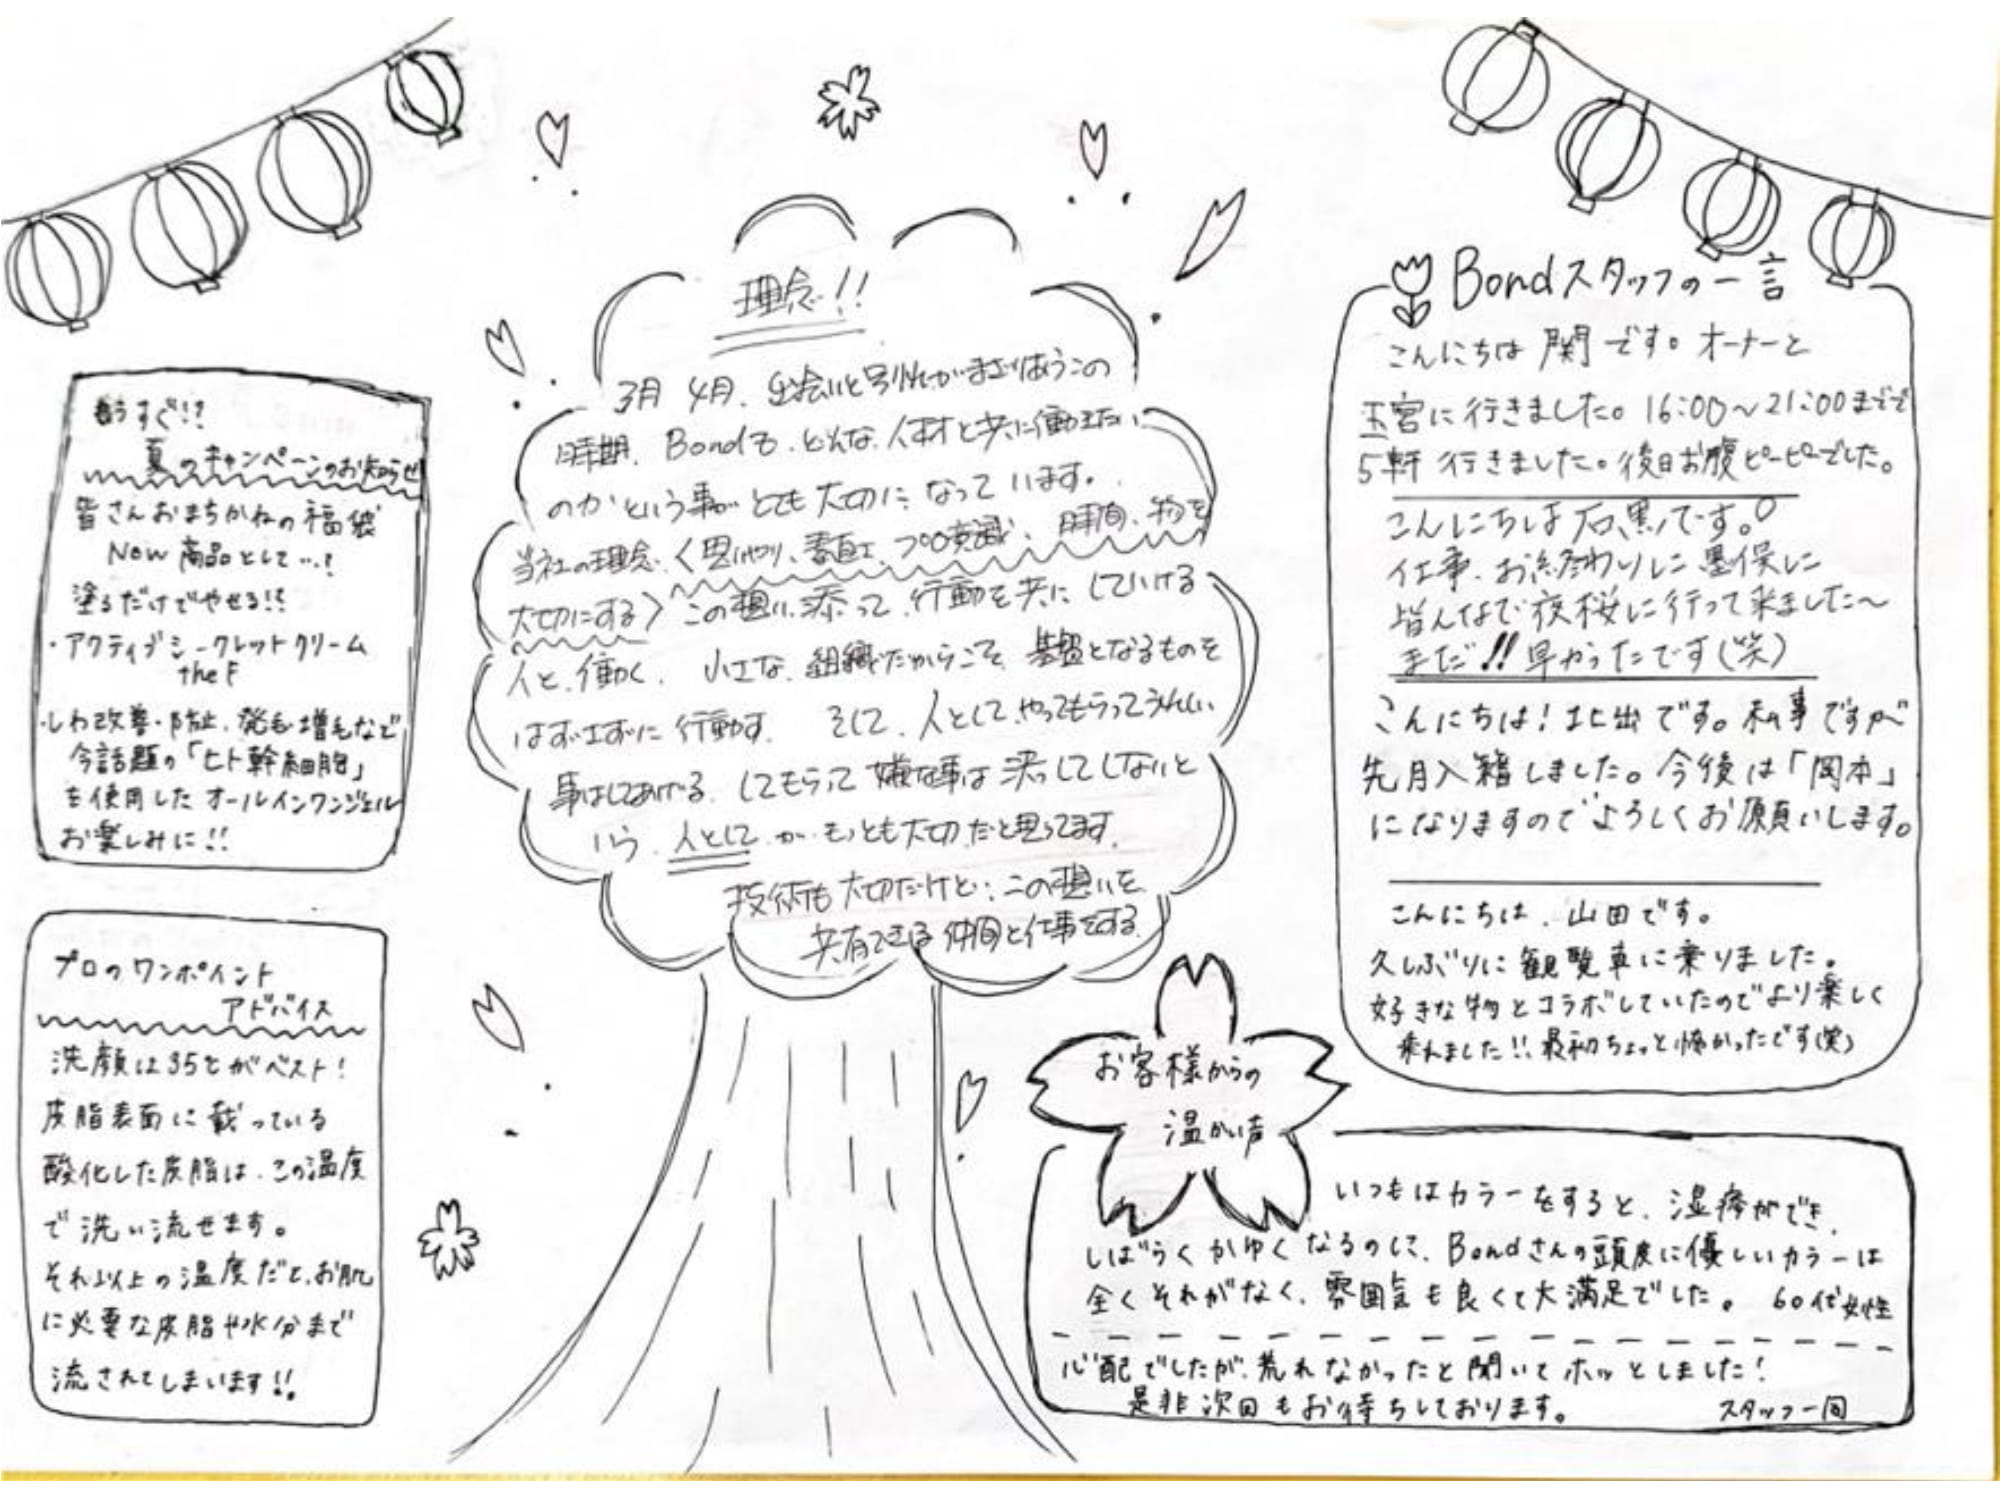 もうすぐ!?
夏のキャンペーンのお知らせ
皆さんおまちかねの福袋
Now 商品として…!
塗るだけでやせる!!
・アクティブシークレットクリーム
the F
・しわ改善・防止、発毛・増毛など
今話題の「ヒト幹細胞」
を使用したオールインワンジェル
お楽しみに!!
プロのワンポイント
アドバイス
洗顔は35℃がベスト!
皮脂表面に載っている
酸化した皮脂は、この温度
で洗い流せます。
それ以上の温度だと、お肌
に必要な皮脂や水分まで
流されてしまいます!!
理念!!
3月 4月、出会いと別れがまざりあうこの
時期、Bondも、どんな人材と共に働きたい
のかという事がとても大切になっています。
当社の理念、〈思いやり、素直、プロ意識、時間、物を
大切にする〉この想いに添って、行動を共にしていける
人と、働く、小さな組織だからこそ、基盤となるものを
はずさずに行動す、そして、人として、やってもらってうれしい
事はしてあげる、してもらって嫌な事は決ってしないと
いう、人として、が、もっとも大切だと思ってます。
技術も大切だけど:この想いを
共有できる仲間と仕事をする
Bondスタッフの一言
こんにちは 関です。オーナーと
玉宮に行きました。16:00〜21:00までで
5軒行きました。後日お腹ピーピーでした。
こんにちは石黒です。
仕事、お終わりに墨俣に
皆んなで夜桜に行って来ました〜
まだ!!早かったです(笑)
こんにちは!北出です。私事ですが
先月入籍しました。今後は「岡本」
になりますのでよろしくお願いします。
こんにちは、山田です。
久しぶりに観覧車に乗りました。
好きな物とコラボしていたのでより楽しく
乗れました!!最初ちょっと怖かったです(笑)
お客様からの
温かい声
いつもはカラーをすると、湿疹ができ、
しばらくかゆくなるのに、Bondさんの頭皮に優しいカラーは
全くそれがなく、雰囲気も良くて大満足でした。 60代女性
心配でしたが、荒れなかったと聞いてホッとしました!
是非次回もお待ちしております。 スタッフ一同